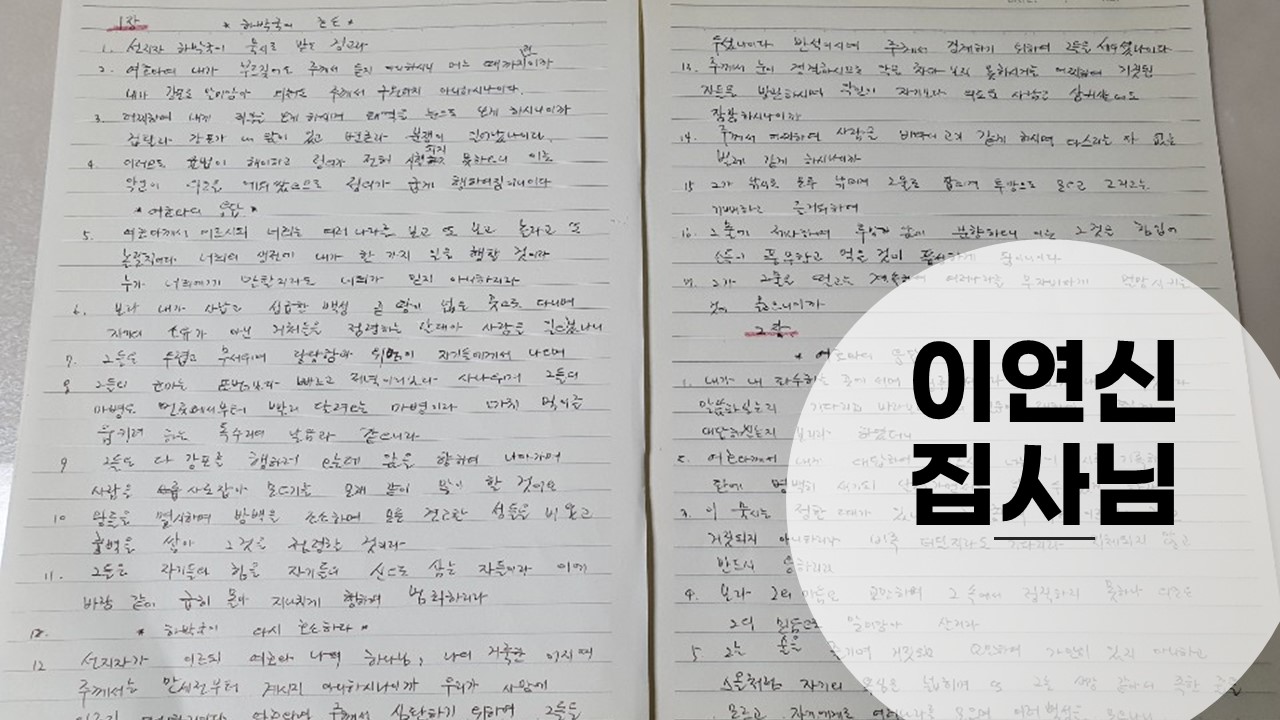 1장 * 하박국의 호소 *
1. 선지자 하박국이 묵시로 받은 경고라
2. 여호와여 내가 부르짖어도 주께서 듣지 아니하시니 어느 때까지이니까
내가 강포로 말미암아 외쳐도 주께서 구원하지 아니하시나이다.
3. 어찌하여 내게 죄악을 보게 하시며 패역을 눈으로 보게 하시나이까
겁탈과 강포가 내 앞에 있고 변론과 분쟁이 일어났나이다.
4. 이러므로 율법이 해이하고 정의가 전혀 시행되지 못하오니 이는
악인이 의인을 에워쌌으므로 정의가 굽게 행하여짐이니이다
* 여호와의 응답 *
5. 여호와께서 이르시되 너희는 여러 나라를 보고 또 보고 놀라고 또
놀랄지어다 너희의 생전에 내가 한 가지 일을 행할 것이라
누가 너희에게 말할지라도 너희가 믿지 아니하리라
6. 보라 내가 사납고 성급한 백성 곧 땅이 넓은 곳으로 다니며
자기의 소유가 아닌 거처들을 점령하는 갈대아 사람을 일으켰나니
7. 그들은 두렵고 무서우며 당당함과 위엄이 자기들에게서 나오며
8 그들의 군마는 표범보다 빠르고 저녁 이리보다 사나우며 그들의
마병은 먼 곳에서부터 빨리 달려오는 마병이라 마치 먹이를
움키려 하는 독수리의 날음과 같으니라
9 그들은 다 강포를 행하러 오는데 앞을 향하여 나아가며
사람을 사로잡아 모으기를 모래 같이 많이 할 것이요
10 왕들을 멸시하며 방백을 조소하며 모든 견고한 성들을 비웃고
흉벽을 쌓아 그것을 점령할 것이라
11. 그들은 자기들의 힘을 자기들의 신으로 삼는 자들이라 이에
바람 같이 급히 몰아 지나치게 행하여 범죄하리라
12. * 하박국이 다시 호소하다 *
12 선지자가 이르되 여호와 나의 하나님, 나의 거룩한 이시여
주께서는 만세전부터 계시지 아니하시니이까 우리가 사망에
주께서 심판하기 위하여 그들을
두셨나이다 반석이시여 주께서 경계하기 위하여 그들을 세우셨나이다
13. 주께서는 눈이 정결하시므로 악을 차마 보지 못하시거늘 어찌하여 거짓된
자들을 방관하시며 악인이 자기보다 의로운 사람을 삼키는데도
잠잠하시나이까
14. 주께서 어찌하여 사람을 바다의 고기 같게 하시며 다스리는 자 없는
벌레 같게 하시나이까
15 그가 낚시로 모두 낚으며 그물로 잡으며 투망으로 모으고 그리고는
기뻐하고 즐거워하여
16. 그물에 제사하며 투망 앞에 분향하오니 이는 그것을 힘입어
소득이 풍부하고 먹을 것이 풍성하게 됨이니이다
17. 그가 그물을 떨고는 계속하여 여러 나라를 무자비하게 멸망시키는
것이 옳으니이까
2장
* 여호와의 응답
1. 내가 내 파수하는 곳에 서며
말씀하실는지 기다리고 바라보며
대답하실는지 보리라 하였더니
2. 여호와께서 내게 대답하여
판에 명백히 새기되
3. 이 묵시는 정한 때가 있나니
거짓되지 아니하리라 비록 더딜지라도 기다리라 지체되지 않고
반드시 응하리라
4. 보라 그의 마음은 교만하며 그 속에서 정직하지 못하나 의인은
그의 믿음으로 말미암아 살리라
5. 그는 술을 즐기며 거짓되고 교만하여 가만히 있지 아니하고
스올처럼 자기의 욕심을 넓히며 또 그는 사망 같아서 족한 줄을
모르고 자기에게로 여러 나라를 모으며 여러 백성을 모으나니
이연신
집사님